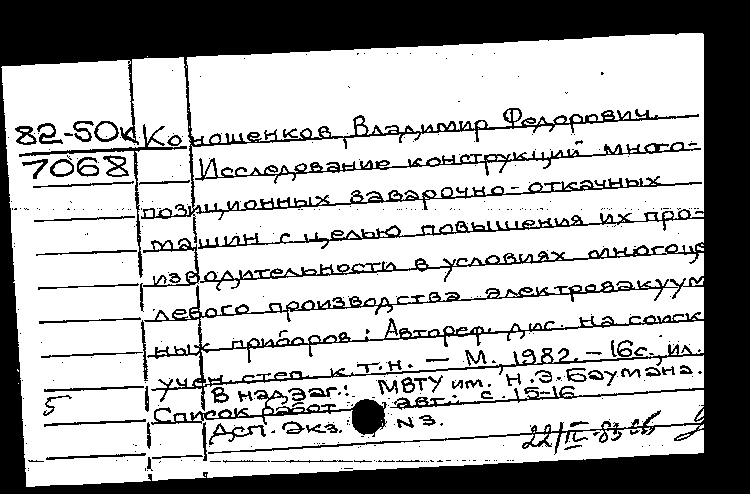 82-50к
7068
Коношенков, Владимир Федорович.
Исследование конструкций много-
позиционных заварочно-откачных
машин с целью повышения их про-
изводительности в условиях многоце
левого производства электровакуум
ных приборов: Автореф. дис. на соиск
учен. степ. к.т.н. — М., 1982. – 16с., ил.
В надзаг.: МВТУ им. Н.Э.Баумана.
5
Список работ авт.: с. 15-16
Дсп. Экз. N 3.
22/II-83